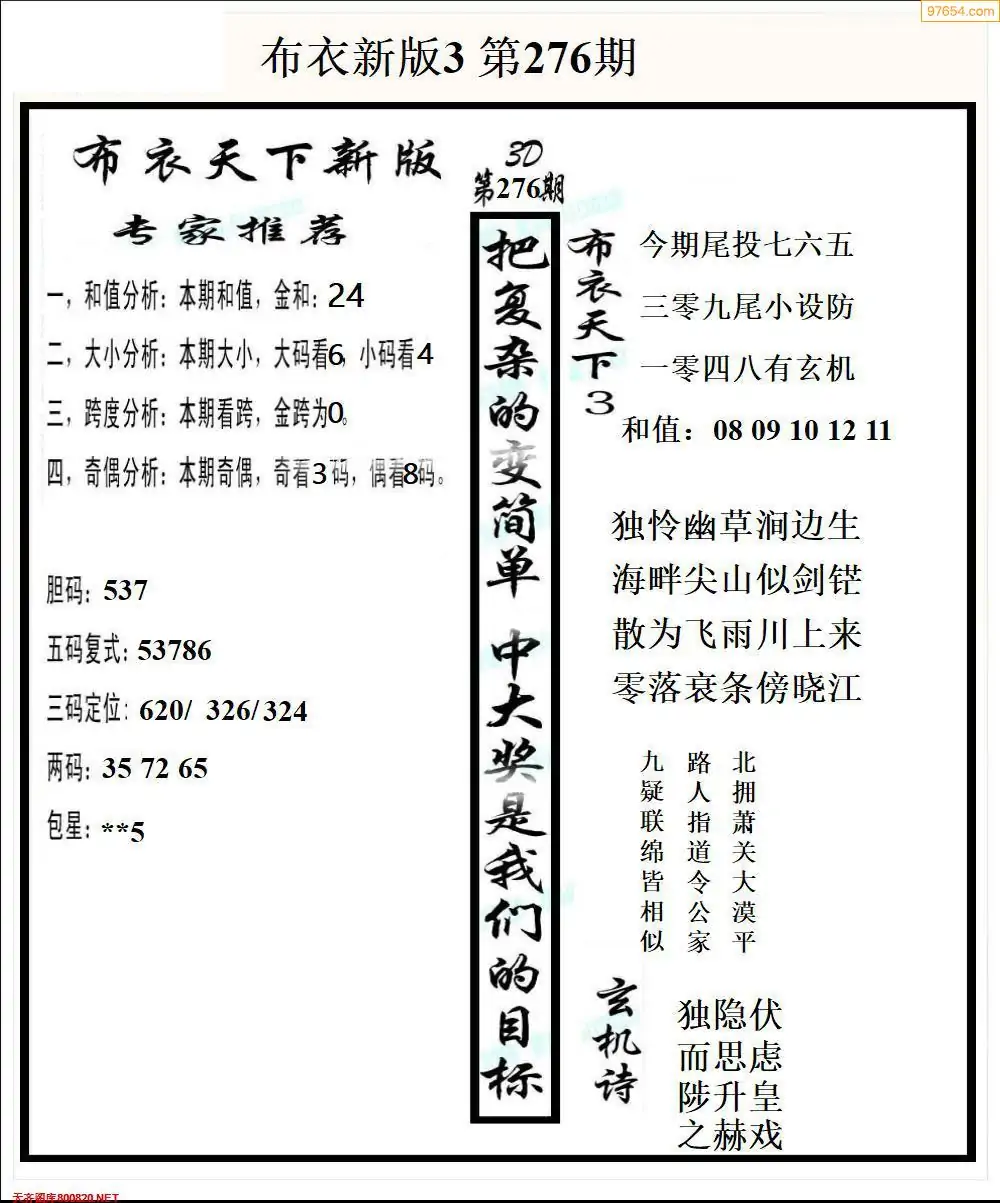 97654.com
布衣新版3 第276期
布衣天下新版
专家推荐
一，和值分析：本期和值，金和：24
二，大小分析：本期大小，大码看6，小码看4
三，跨度分析：本期看跨，金跨为0。
四，奇偶分析：本期奇偶，奇看3码，偶看8码。
胆码：537
五码复式：53786
三码定位：620/ 326/324
两码：35 72 65
包星：**5
3D
第276期
把复杂的变简单 中大奖是我们的目标
布衣天下3
今期尾投七六五
三零九尾小设防
一零四八有玄机
和值：08 09 10 12 11
独怜幽草涧边生
海畔尖山似剑铓
散为飞雨川上来
零落衰条傍晓江
九疑联绵皆相似
路人指道令公家
北拥萧关大漠平
玄机诗
独隐伏
而思虑
陟升皇
之赫戏
天齐图库800820.NET